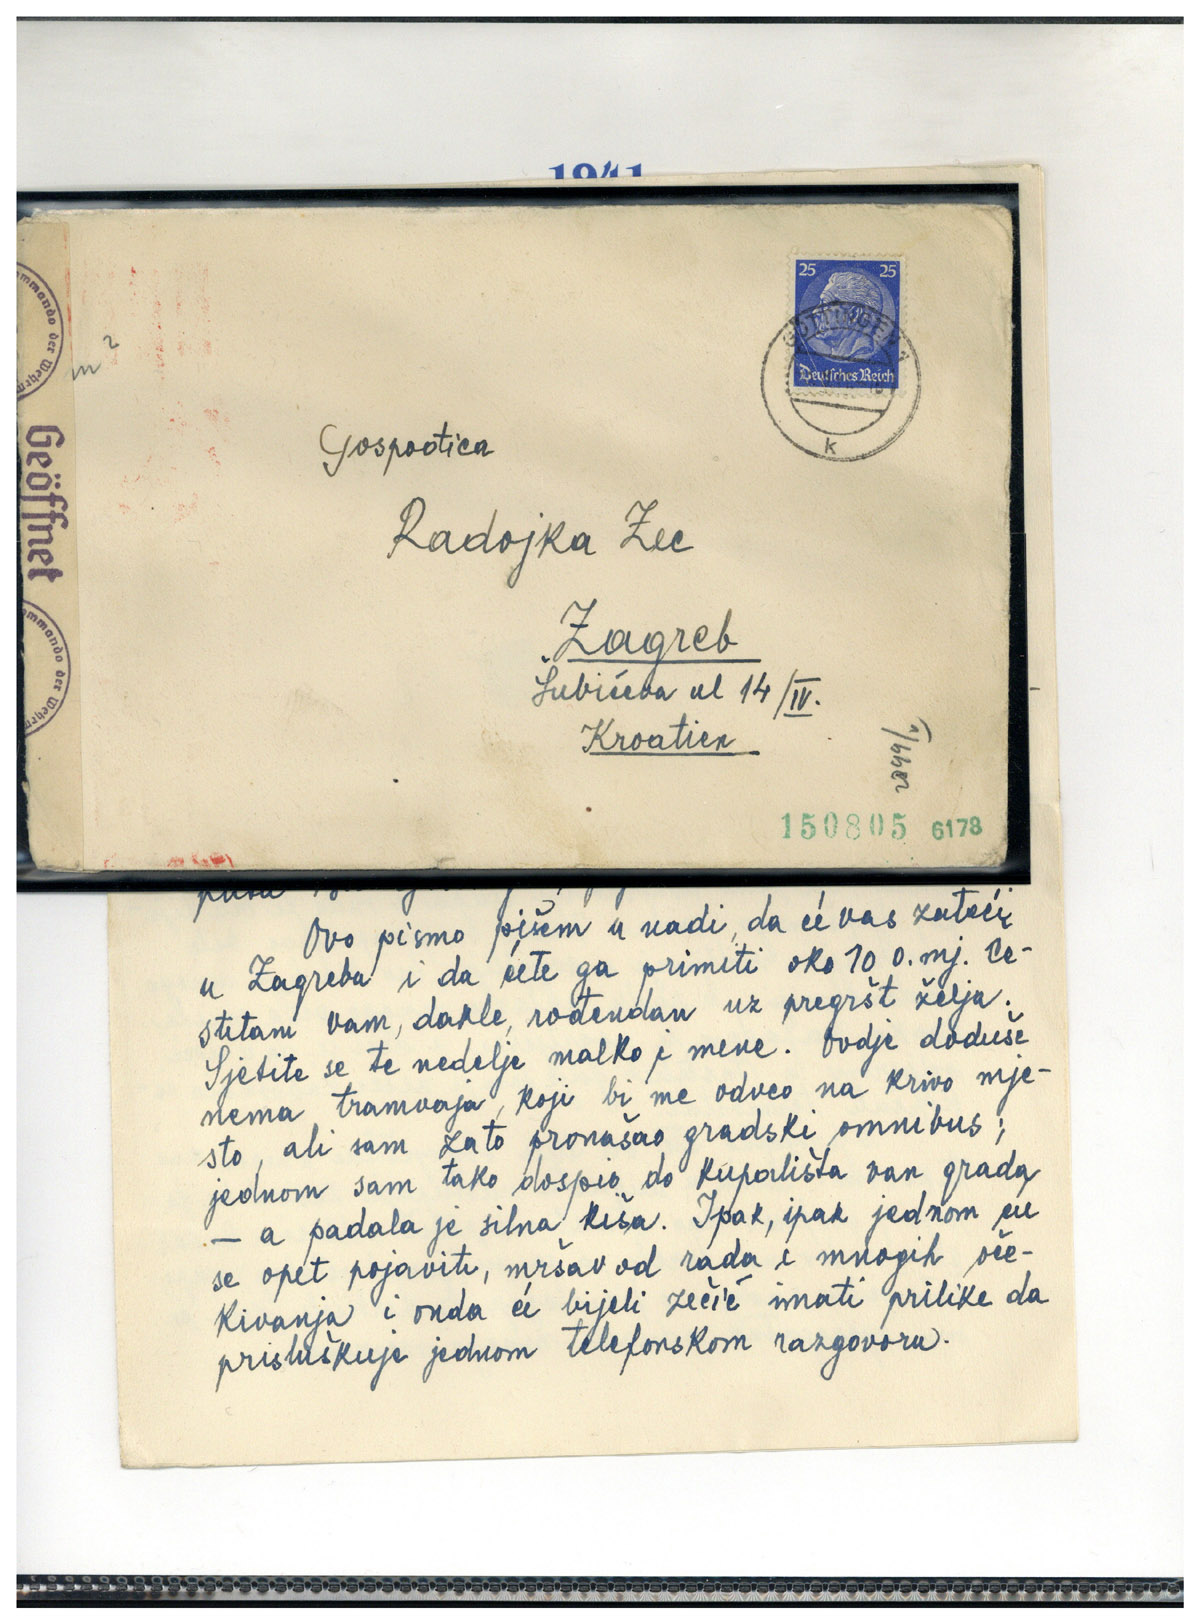 1941
25 25
Deutsches Reich
GÖTTINGEN 2
k
Kommando der Wehrm
Geöffnet
Kommando der Wehrm
m²
Gospođica
Radojka Zec
Zagreb
Šubićeva ul 14/IV.
Kroatien
150805 6178
Ovo pismo pišem u nadi, da će vas zateći
u Zagrebu i da ćete ga primiti oko 10 o. mj. Če-
stitam vam, dakle, rođendan uz pregršt želja.
Sjetite se te nedelje malko i mene. Ovdje doduše
nema tramvaja, koji bi me odveo na krivo mje-
sto, ali sam zato pronašao gradski omnibus;
jednom sam tako dospio do kupališta van grada
— a padala je silna kiša. Ipak, ipak jednom ću
se opet pojaviti, mršav od rada i mnogih oče-
kivanja i onda će bijeli zečić imati prilike da
prisluškuje jednom telefonskom razgovoru.